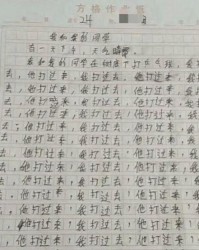 24
我和我的同学
有一天下午，天气晴
我和我的同学在 打乒乓球，我
去，他打过来，我打过去，他打过来，我
去，他打过来，我打过去，他打过来，我
去，他打过来，我打过去，他打过来，我
去，他打过来，我打过去，他打过来，我
去，他打过来，我打过去！他打过来！我
去，他打过来，我打过去！他打过来！我
去！他打过来，我打过去！他打过来！我
去，他打过来，我打过去！他打过来！我
去！他打过来！我打过去！他打过来！我
他打过来！我打过去！他打过来！我